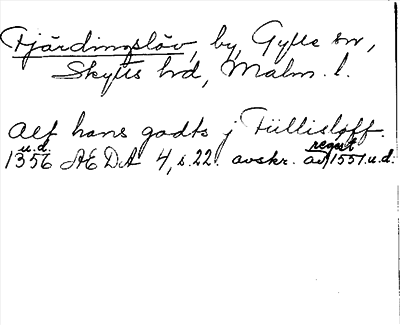 Fjärdingslöv, by, Gylle sn,
Skytts hd, Malm. l.
alt hans godts j Füllisløff.
1356 u.d. ÆDA 4, s. 22. avskr. av regest 1551 u.d.